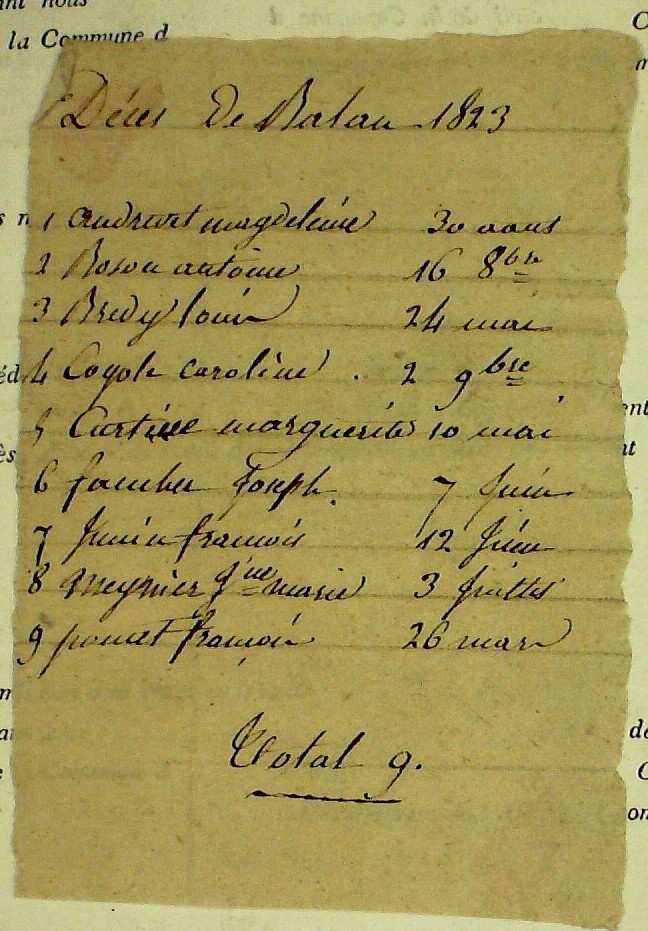 la Commune d
Décès De Balan 1823
1 andrevet magdeleine 30 aous
2 Boson antoine 16 8bre
3 Bredy louis 24 mai
4 Coyole caroline . 2 9bre
5 marguerite 10 mai
6 Joseph. 7 Juin
7 Junin francois 12 Juin
8 Meynier Jne marie 3 Juillet
9 pomet francois 26 mars
Total 9.